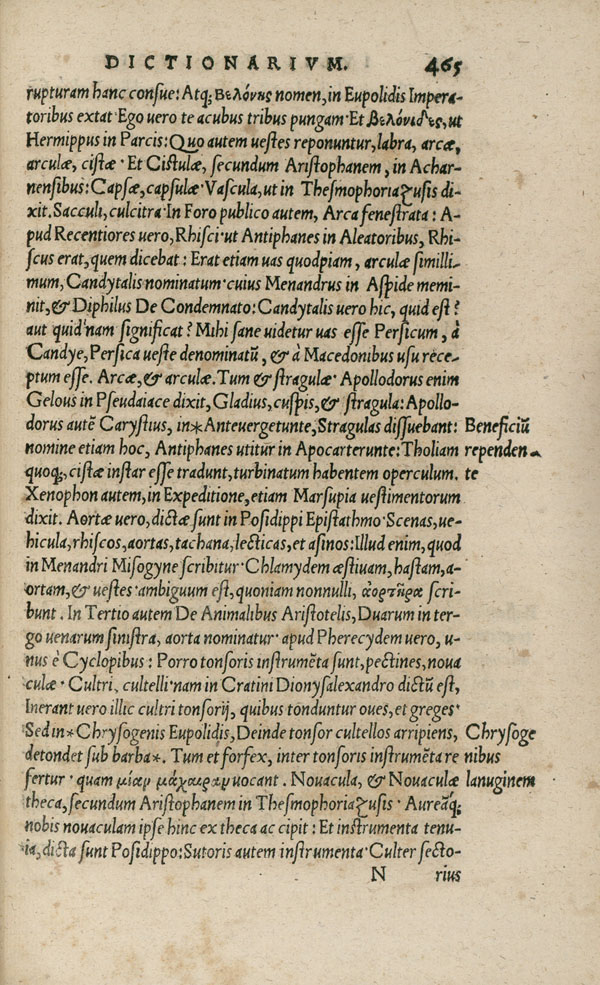 DICTIONARIVM. 465
rupturam hanc consue: Atq; Βελόνης nomen, in Eupolidis Impera-
toribus extat· Ego uero te acubus tribus pungam· Et Βελονίδες, ut
Hermippus in Parcis: Quo autem uestes reponuntur, labra, arcæ,
arculæ, cistæ · Et Cistulæ, secundum Aristophanem, in Achar-
nensibus: Capsæ, capsulæ· Vascula, ut in Thesmophoriazusis di-
xit. Sacculi, culcitra· In Foro publico autem, Arca fenestrata : A-
pud Recentiores uero, Rhisci· ut Antiphanes in Aleatoribus, Rhi-
scus erat, quem dicebat : Erat etiam uas quodpiam, arculæ simillí-
mum, Candytalis nominatum· cuius Menandrus in Aspide memi-
nit, & Diphilus De Condemnato: Candytalis uero hic, quid est ?
aut quid'nam significat ? Mihi sane uidetur uas esse Persicum, à
Candye, Persica ueste denominatũ, & à Macedonibus usu rece-
ptum esse. Arcæ, & arculæ. Tum & stragulæ· Apollodorus enim
Gelous in Pseudaiace dixit, Gladius, cuspis, & stragula: Apollo-
dorus autẽ Carystius, in * Anteuergetunte, Stragulas dissuebant: Beneficiũ
nomine etiam hoc, Antiphanes utitur in Apocarterunte: Tholiam rependen-
quoq;, cistæ instar esse tradunt, turbinatum habentem operculum. te
Xenophon autem, in Expeditione, etiam Marsupia uestimentorum
dixit. Aortæ uero, dictæ sunt in Posidippi Epistathmo· Scenas, ue-
hicula, rhiscos, aortas, tachana, lecticas, et asinos: Illud enim, quod
in Menandri Misogyne scribitur· Chlamydem æstiuam, hastam, a-
ortam, & uestes· ambiguum est, quoniam nonnulli, ἀορτῆρα scri-
bunt . In Tertio autem De Animalibus Aristotelis, Duarum in ter-
go uenarum sinistra, aorta nominatur· apud Pherecydem uero, u-
nus è Cyclopibus : Porro tonsoris instrumẽta sunt, pectines, noua
culæ · Cultri, cultelli· nam in Cratini Dionysalexandro dictũ est,
Inerant uero illic cultri tonsorij, quibus tonduntur oues, et greges·
Sed in * Chrysogenis Eupolidis, Deinde tonsor cultellos arripiens, Chrysoge
detondet sub barba *. Tum et forfex, inter tonsoris instrumẽta re nibus
fertur · quam μίαν μάχαιραν uocant . Nouacula, & Nouaculæ lanuginem
theca, secundum Aristophanem in Thesmophoriazusis · Aureãq;
nobis nouaculam ipse hinc ex theca ac cipit : Et instrumenta tenu-
ia, dicta sunt Posidippo: Sutoris autem instrumenta· Culter secto-
N rius